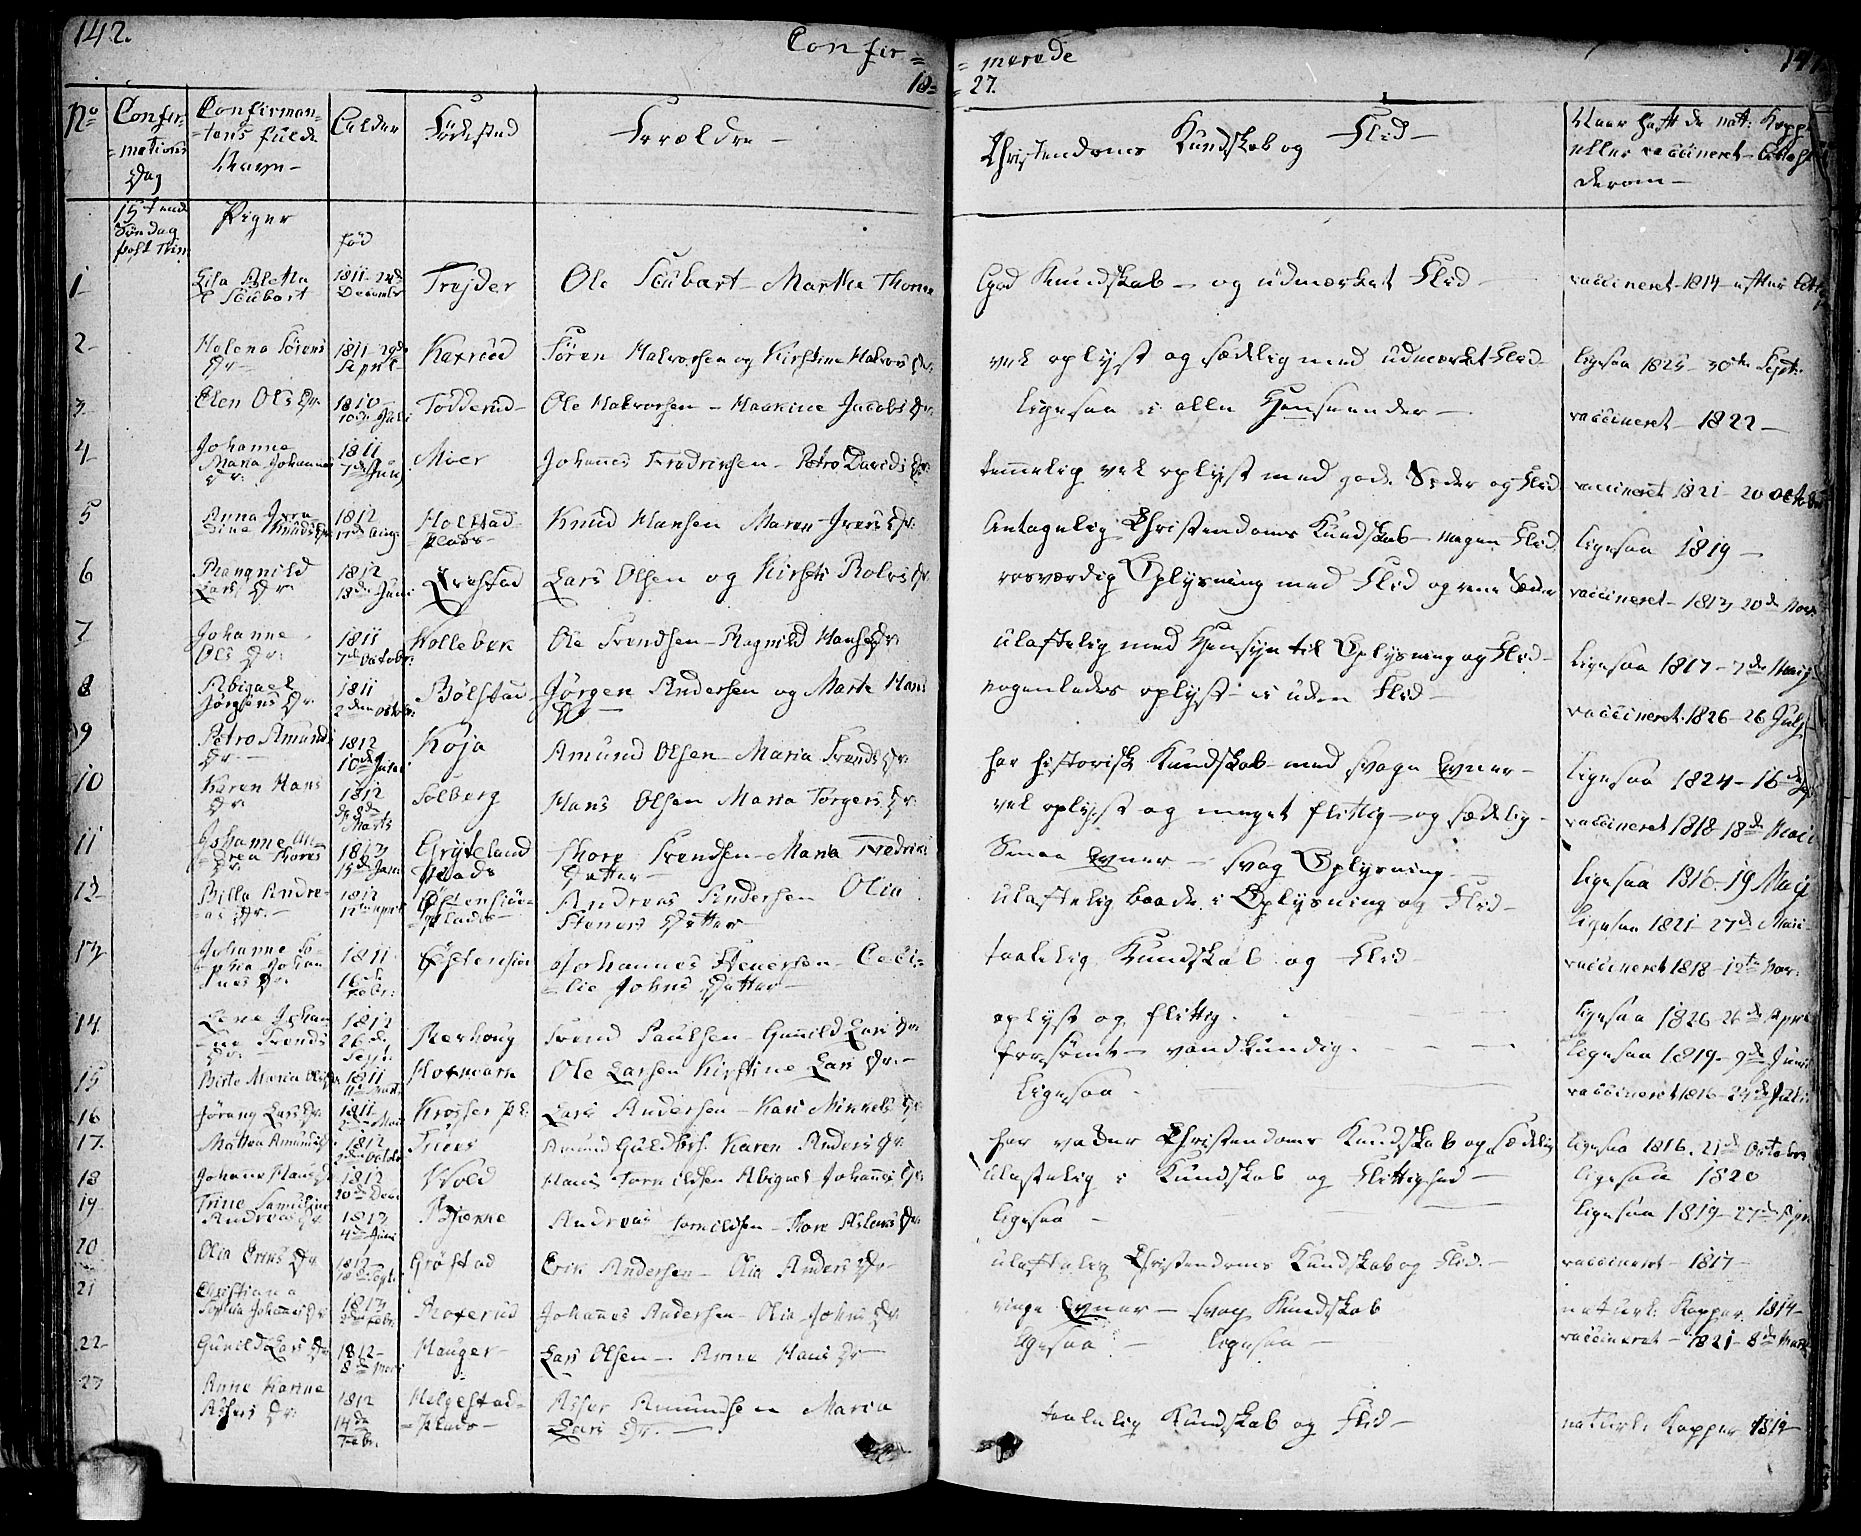 142.
Confir=
= merede
18=
= 27.
No
Confir-
=mations
Dag
Confirman-
=tens fulde
Navn-
Alder
Fødested
Forældre-
Christendoms Kundskab og Flid-
Naar haft de nat: Kopper
eller vaccineret-
derom-
15tende
Søndag
post Trin
Piger
fød
1- Aletta 1811- Decembr Ole - Marthe God Kundskab - og udmærket Flid- vaccineret-1814-
2- Helena Sørens Dr- 1811- April Søren Halvorsen og Kirstine Halvors Dr: vel oplyst og sædelig med udmærket Flid- ligesaa 1825- 30te Septr:
3- Elen Ols Dr. 1810- Juli Ole Halvorsen- Jacobs Dr: ligesaa i alle Henseender- vaccineret- 1822-
4- Johanne Maria Johannes Dr: 1811 7de Moer Johannes Fredriksen- Petro Davids Dr: temmelig vel oplyst med gode Sæder og Flid vaccineret 1821- 20 Octobr
5 Anna Knuds Dr. 1812 17de Aug. Holstad- Plads- Knud Hansen Maren Ivers Dr: Antagelig Christendoms Kundskab- megen Flid ligesaa 1819-
6 Rangnild Lars Dr 1812 18de Juni Lars Olsen og Kirsti Rolvs Dr. rosværdig Oplysning med Flid og rene Sæder vaccineret- 1813, 20de Nov.
7 Johanne Ols Dr: 1811 7de Octobr: Kollebek Ole Svendsen- Ragnild Hans Dr: ulastelig med Hensyn til Oplysning og Flid- ligesaa 1817- 7de Maij
8 Abigael Jørgens Dr. 1811 2den Octobr: Bølstad Jørgen Andersen og Marte Hans Dr- nogenledes oplyst- ei uden Flid- vaccineret. 1826- 26 Julj
9 Petro Amunds Dr.- 1812 10de Koja Amund Olsen- Maria Svends Dr: har historisk Kundskab- med svage Evner- ligesaa 1824- 16de
10 Karen Hans Dr. 1812 d. 8de Marts Solberg Hans Olsen Maria Torgers Dr: vel oplyst og meget flittig- og sædelig- vaccineret 1818 18de
11 Johanne An- =drea Thores Dr: 1813 15de Gryteland Plads Thore Svendsen- Maria Fredriks Datter- Smaa Evner- svag Oplysning- ligesaa 1816- 19 Maij
12- Andre- =as Dr.- 1812 Østensiøe- =Plads- Andreas Andersen Olia Steners Datter- ulastelig baade i Oplysning og Flid- ligesaa 1821- 27de
13 Johanne So- =phia Johan =nes Dr. 1811 16de Febr: Østensiøe Johannes Stenersen- Ceci- =lie Johns Datter- taalelig Kundskab og Flid- vaccineret 1818- 12te Nov:
14. Lene Johan =ne Svends Dr:- 1812 26de Septr. Svend Paulsen- Gunnild Lars Dr. oplyst og flittig. ligesaa 1826 26de April
15 Birte Maria Ols Dr 1811 Ole Larsen Kirstine Lars Dr.- forsømt- vankundig. ligesaa 1819. 9de Junii
16 Jørang Lars Dr. 1811 Krosser Pl. Lars Andersen- Kari Mikkels Dr ligesaa. vaccineret 1816- 24de Julii
17. Mathea Amunds Dr 1812 2den Octobr Amund Guldbrs. Karen Anders Dr. har vakker Christendoms Kundskab og sædelig ligesaa 1816. 21de Octobr
18 Johanne Hans Dr 1812 20de Decm Wold Hans Abigael Johannes Dr: ulastelig i Kundskab og Flittighed- ligesaa 1820
19 Trine Andreas Dr. 1813 4de Juni Andreas - Thore Aslaks Dr. ligesaa- ligesaa 1819- 27de
20 Olia Eriks Dr 1812- 18de Septr. Grøstad Erik Andersen- Olia Anders Dr- ulastelig Christendoms Kundskab og Flid.- vaccineret- 1817-
21 Christiana Sophia Johannes Dr. 1813 2den Febr. Johannes Andersen- Olia Johns Dr ringe Evner- svag Kundskab naturl: Kopper 1814-
22- Gunild Lars Dr 1812- 8de Hauger- Lars Olsen- Anne Hans Dr- ligesaa- ligesaa- vaccineret- 1821- 8de Marts
23 Anne Karine Assers Dr: 1812 14de Febr. Helgestad- =Plads- Asser Amundsen Maria Lars Dr.- taalelig Kundskab og Flid- naturl: Kopper 1819-